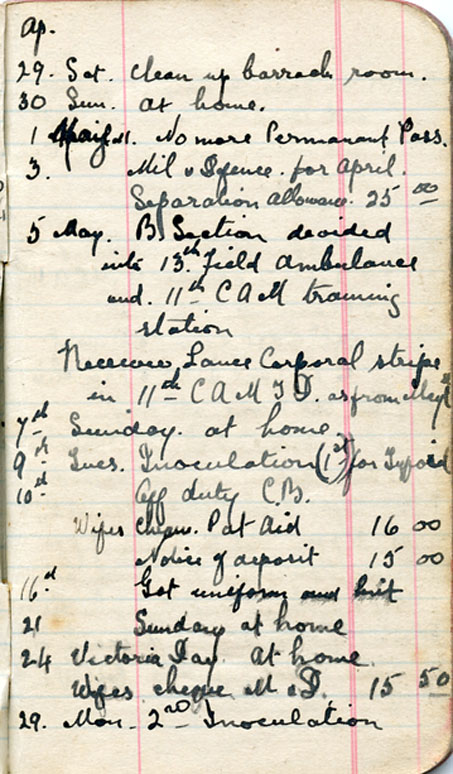 Ap.
29. Sat. Clean up barrack room.
30 Sun. at home.
1 M. No more Permanant Pass.
3. Mil & Defence. for April.
Separation Allowance. 25 00
5 May. B. Section devided
into 13th Field Ambulance
and 11th C A M training
station
Lance Corporal stripe
in 11th C A M T D. as from May 1st
7th Sunday. at home
9th Tues. Inoculation (1st) for Typoid
10th off duty C.B.
Wifes cheque. Pat Aid 16 00
Notice of deposit 15 00
16th Got uniform and kit
21 Sunday at home
24 Victoria Day. At home.
Wifes cheque M & D. 15 50
29. Mon. 2nd Inoculation